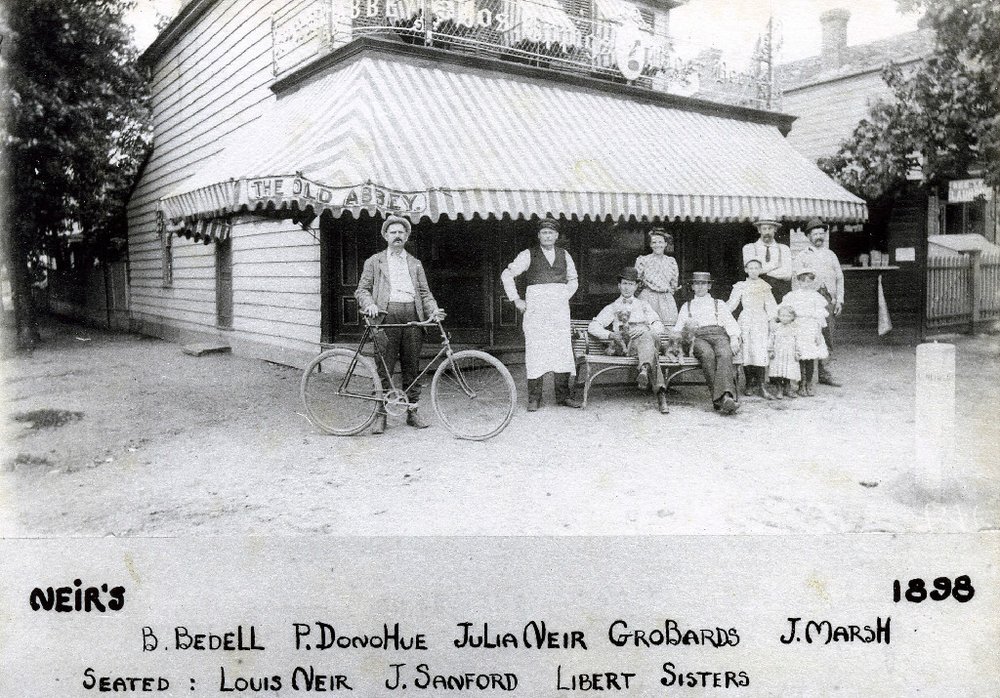 THE OLD ABBEY
NEIR'S
1898
B. BEDELL P. DONOHUE JULIA NEIR GROBARDS J. MARSH
SEATED : LOUIS NEIR J. SANFORD LIBERT SISTERS